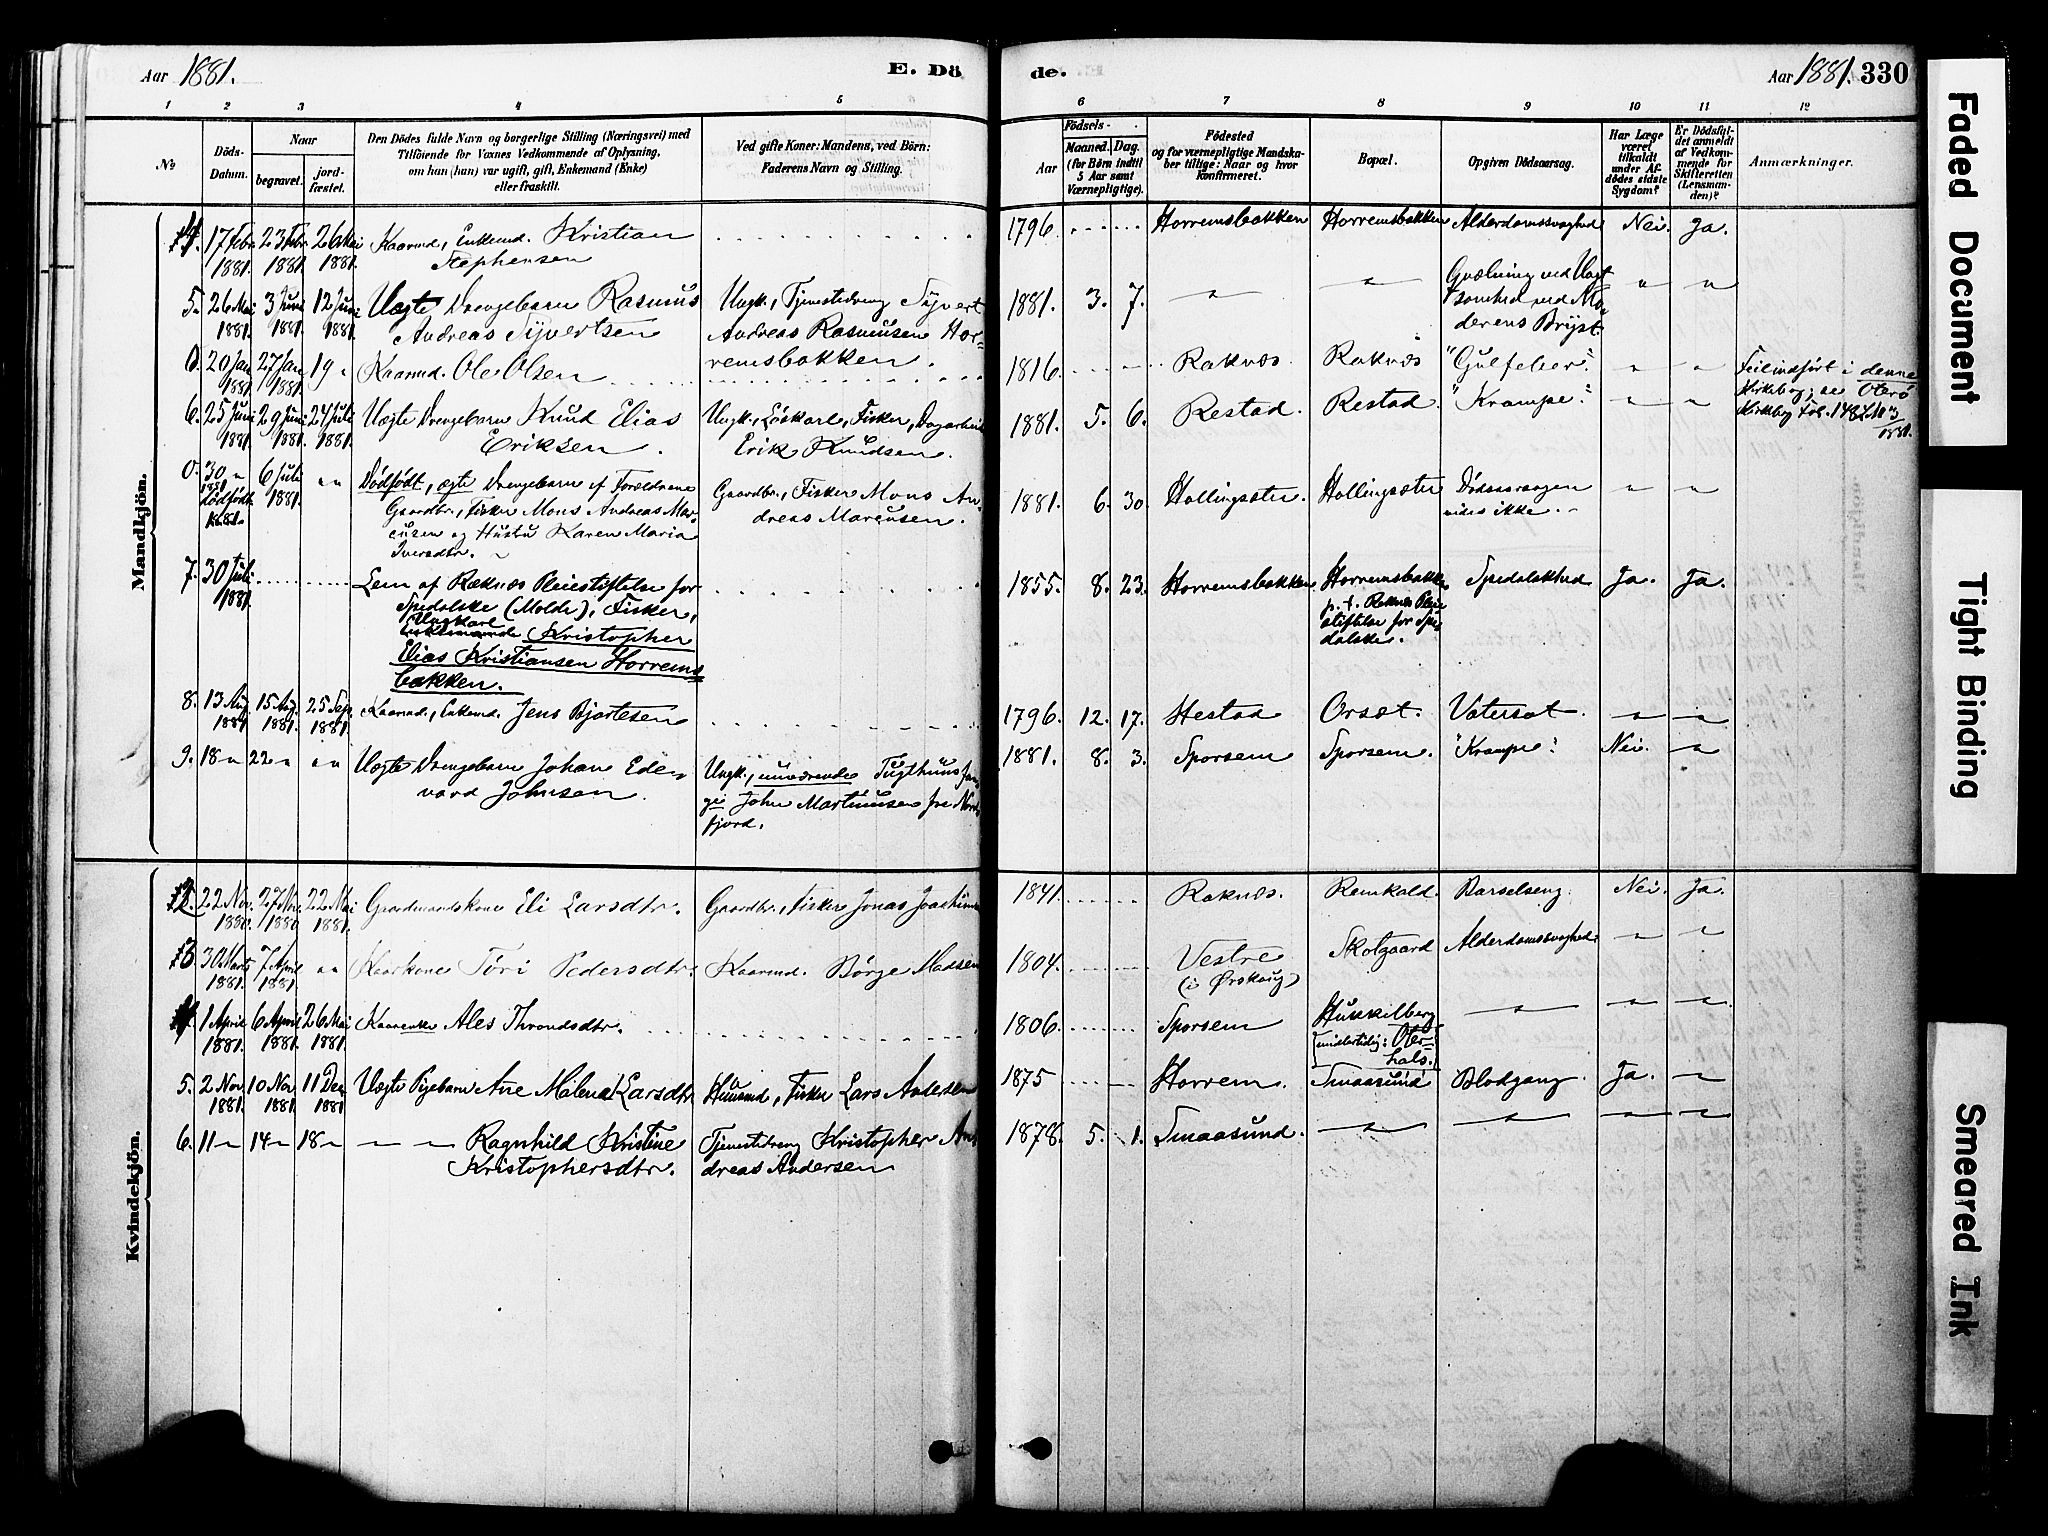 Aar 1881.
E. Dö
de.
Aar 1881. 330
1 2 3 4 5 6 7 8 9 10 11 12
No
Döds-
Datum.
Naar
begravet.
jord-
fæstet.
Den Dödes fulde Navn og borgerlige Stilling (Næringsvei) med
Tilföiende for Voxnes Vedkommende af Oplysning,
om han (hun) var ugift, gift, Enkemand (Enke)
eller fraskilt.
Ved gifte Koner: Mandens, ved Börn:
Faderens Navn og Stilling.
Födsels-
Aar
Maaned. Dag.
(for Börn indtil
5 Aar samt
Værnepligtige).
Födested
og for værnepligtige Mandska-
ber tillige: Naar og hvor
konfirmeret.
Bopæl.
Opgiven Dödsaarsag.
Har Læge
været
tilkaldt
under Af-
dödes sidste
Sygdom?
Er Dödsfal-
det anmeldt
af Vedkom-
mende for
Skifteretten
(Lensman-
den)?
Anmærkninger.
Mandkjön.
4. 17 Febr. 1881. 23 Febr. 1881. 26 Mai 1881. Kaarmd., Enkemd. Kristian
Stephensen
1796. Horremsbakken Horremsbakken Alderdomssvaghed Nei. Ja.
5. 26 Mai 1881. 3 Juni 1881. 12 Juni 1881. Uægte Drengebarn Rasmus
Andreas Syvertsen
Ungk., Tjenestedreng Syvert
Andreas Rasmussen Hor-
remsbakken.
1881. 3. 7. " " Qvælning ved Uagt
somhed ved Mo-
derens Bryst. " "
0. 20 Jan 1881. 27 Jan. 1881. 19 " Kaarmd. Ole Olsen
1816. Raknæs. Raknæs "Gulfeber". " "
Feilindført i denne
Kirkebog; se Oterø
Kirkebog Fol. 148
6. 25 Juni 1881. 29 Juni 1881. 24 Juli 1881. Uægte Drengebarn Knud Elias
Eriksen.
Ungk., Löskarl, Fisker, Dagarbeid
Erik Knudsen.
1881. 5. 6. Restad. Restad. "Krampe". " "
0. 30 " 1881 dødfødt 6 Juli 1881. " " Dødfødt, ægte Drengebarn af Forældrene
Gaardbr., Fisker Mons Andreas Mar-
cusen og Hustru Karen Maria
Iversdtr.
Gaardbr., Fisker Mons An-
dreas Marcusen.
1881. 6. 30. Hollingsæter. Hollingsæter Dødsaarsagen
vides ikke. " "
7. 30 Juli 1881. Lem af Reknæs Pleiestiftelse for
Spedalske (Molde), Fisker,
Ungkarl
Kristopher
Elias Kristiansen Horrems
bakken.
1855. 8. 23. Horremsbakken Horremsbakk
p. t. Reknæs Pleie
stiftelse for Spe
dalske. Spedalskhed Ja. Ja.
8. 13 Aug. 1881 15 Aug. 1881. 25 Sep. 1881. Kaarmd., Enkemd. Jens Bjørtesen
1796. 12. 17. Hestad Orsæt. Vatersot. " "
9. 18 " 22 " " " Uægte Drengebarn Johan Ed-
vard Johnsen.
Ungk., nuværende Tugthusfan
ge John Martinusen fra Nord
fjord.
1881. 8. 3. Sporsem Sporsem. "Krampe". Nei. "
Kvindekjön.
2. 22 Nov. 1880. 27 Nov. 1880 22 Mai 1881. Gaardmandskone Eli Larsdtr. Gaardbr., Fisker Jonas Joachims
1841. Raknæs. Remkald. Barselseng. Nei. Ja.
3 30 Marts 1881. 7 April 1881. " " Kaarkone Tøri Pedersdtr. Kaarmd. Børge Madsen
1804. Vestre
(i Ørskoug) Skotgaard Alderdomssvaghed " "
4. 1 April 1881. 6 April 1881. 26 Mai 1881. Kaarenke Ales Throndsdtr.
1806. Sporsem Hukkilberg
midlertidig: Oter-
hals. " " "
5. 2 Nov. 1881. 10 Nov 1881. 11 Dec 1881 Uægte Pigebarn Ane Malena Larsdtr. Huusmd, Fisker Lars Andersen
1875 Horrem. Smaasund Blodgang. Ja. "
6. 11 " 14 " 18 " " " Ragnhild Kristine
Kristophersdtr.
Tjenestedreng Kristopher An
dreas Andersen
1878. 5. 1. Smaasund. " " " "
Faded Document
Tight Binding
Smeared Ink